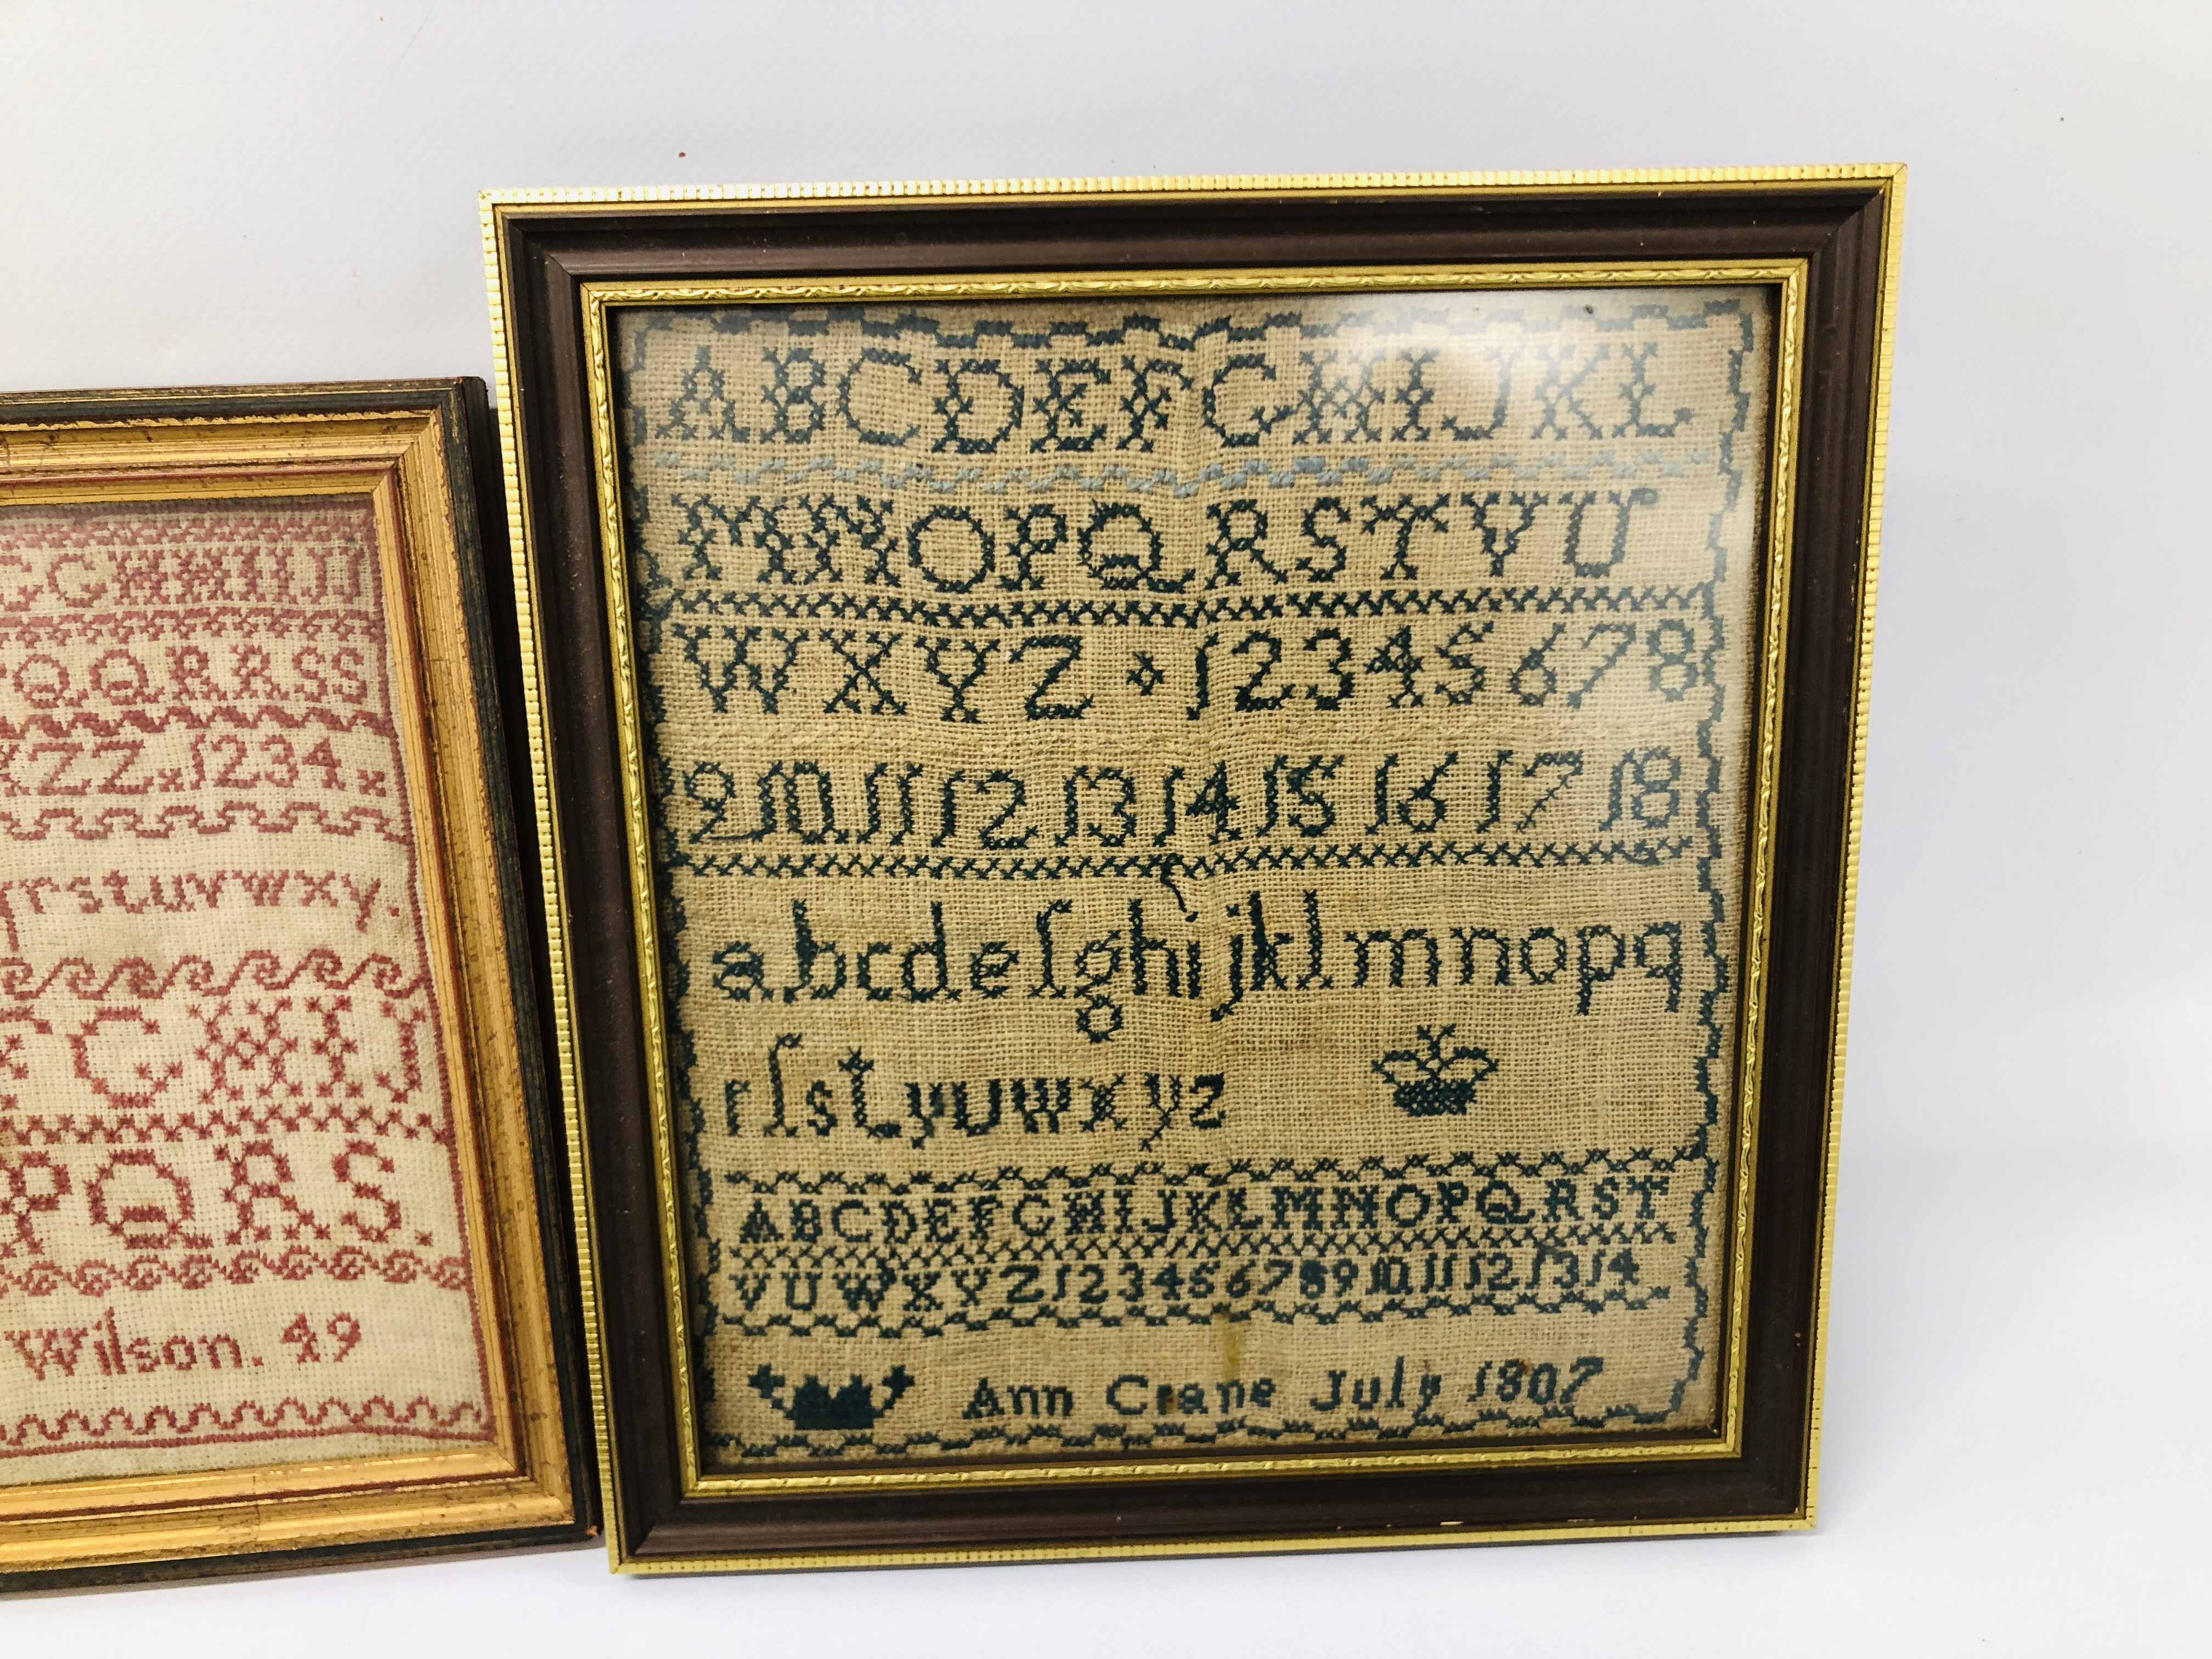 GGHHIIJJ
QQRRSS
ZZ.1234.
rstuvwxy.
GHIJ
PQRS.
Wilson. 49
ABCDEFGHIJKL
MNOPQRSTVU
WXYZ 12345678
9 10 11 12 13 14 15 16 17 18
abcdefghijklmnopq
rſstvuwxyz
ABCDEFGHIJKLMNOPQRST
VUWXYZ1234567891011121314
Ann Crane July 1807